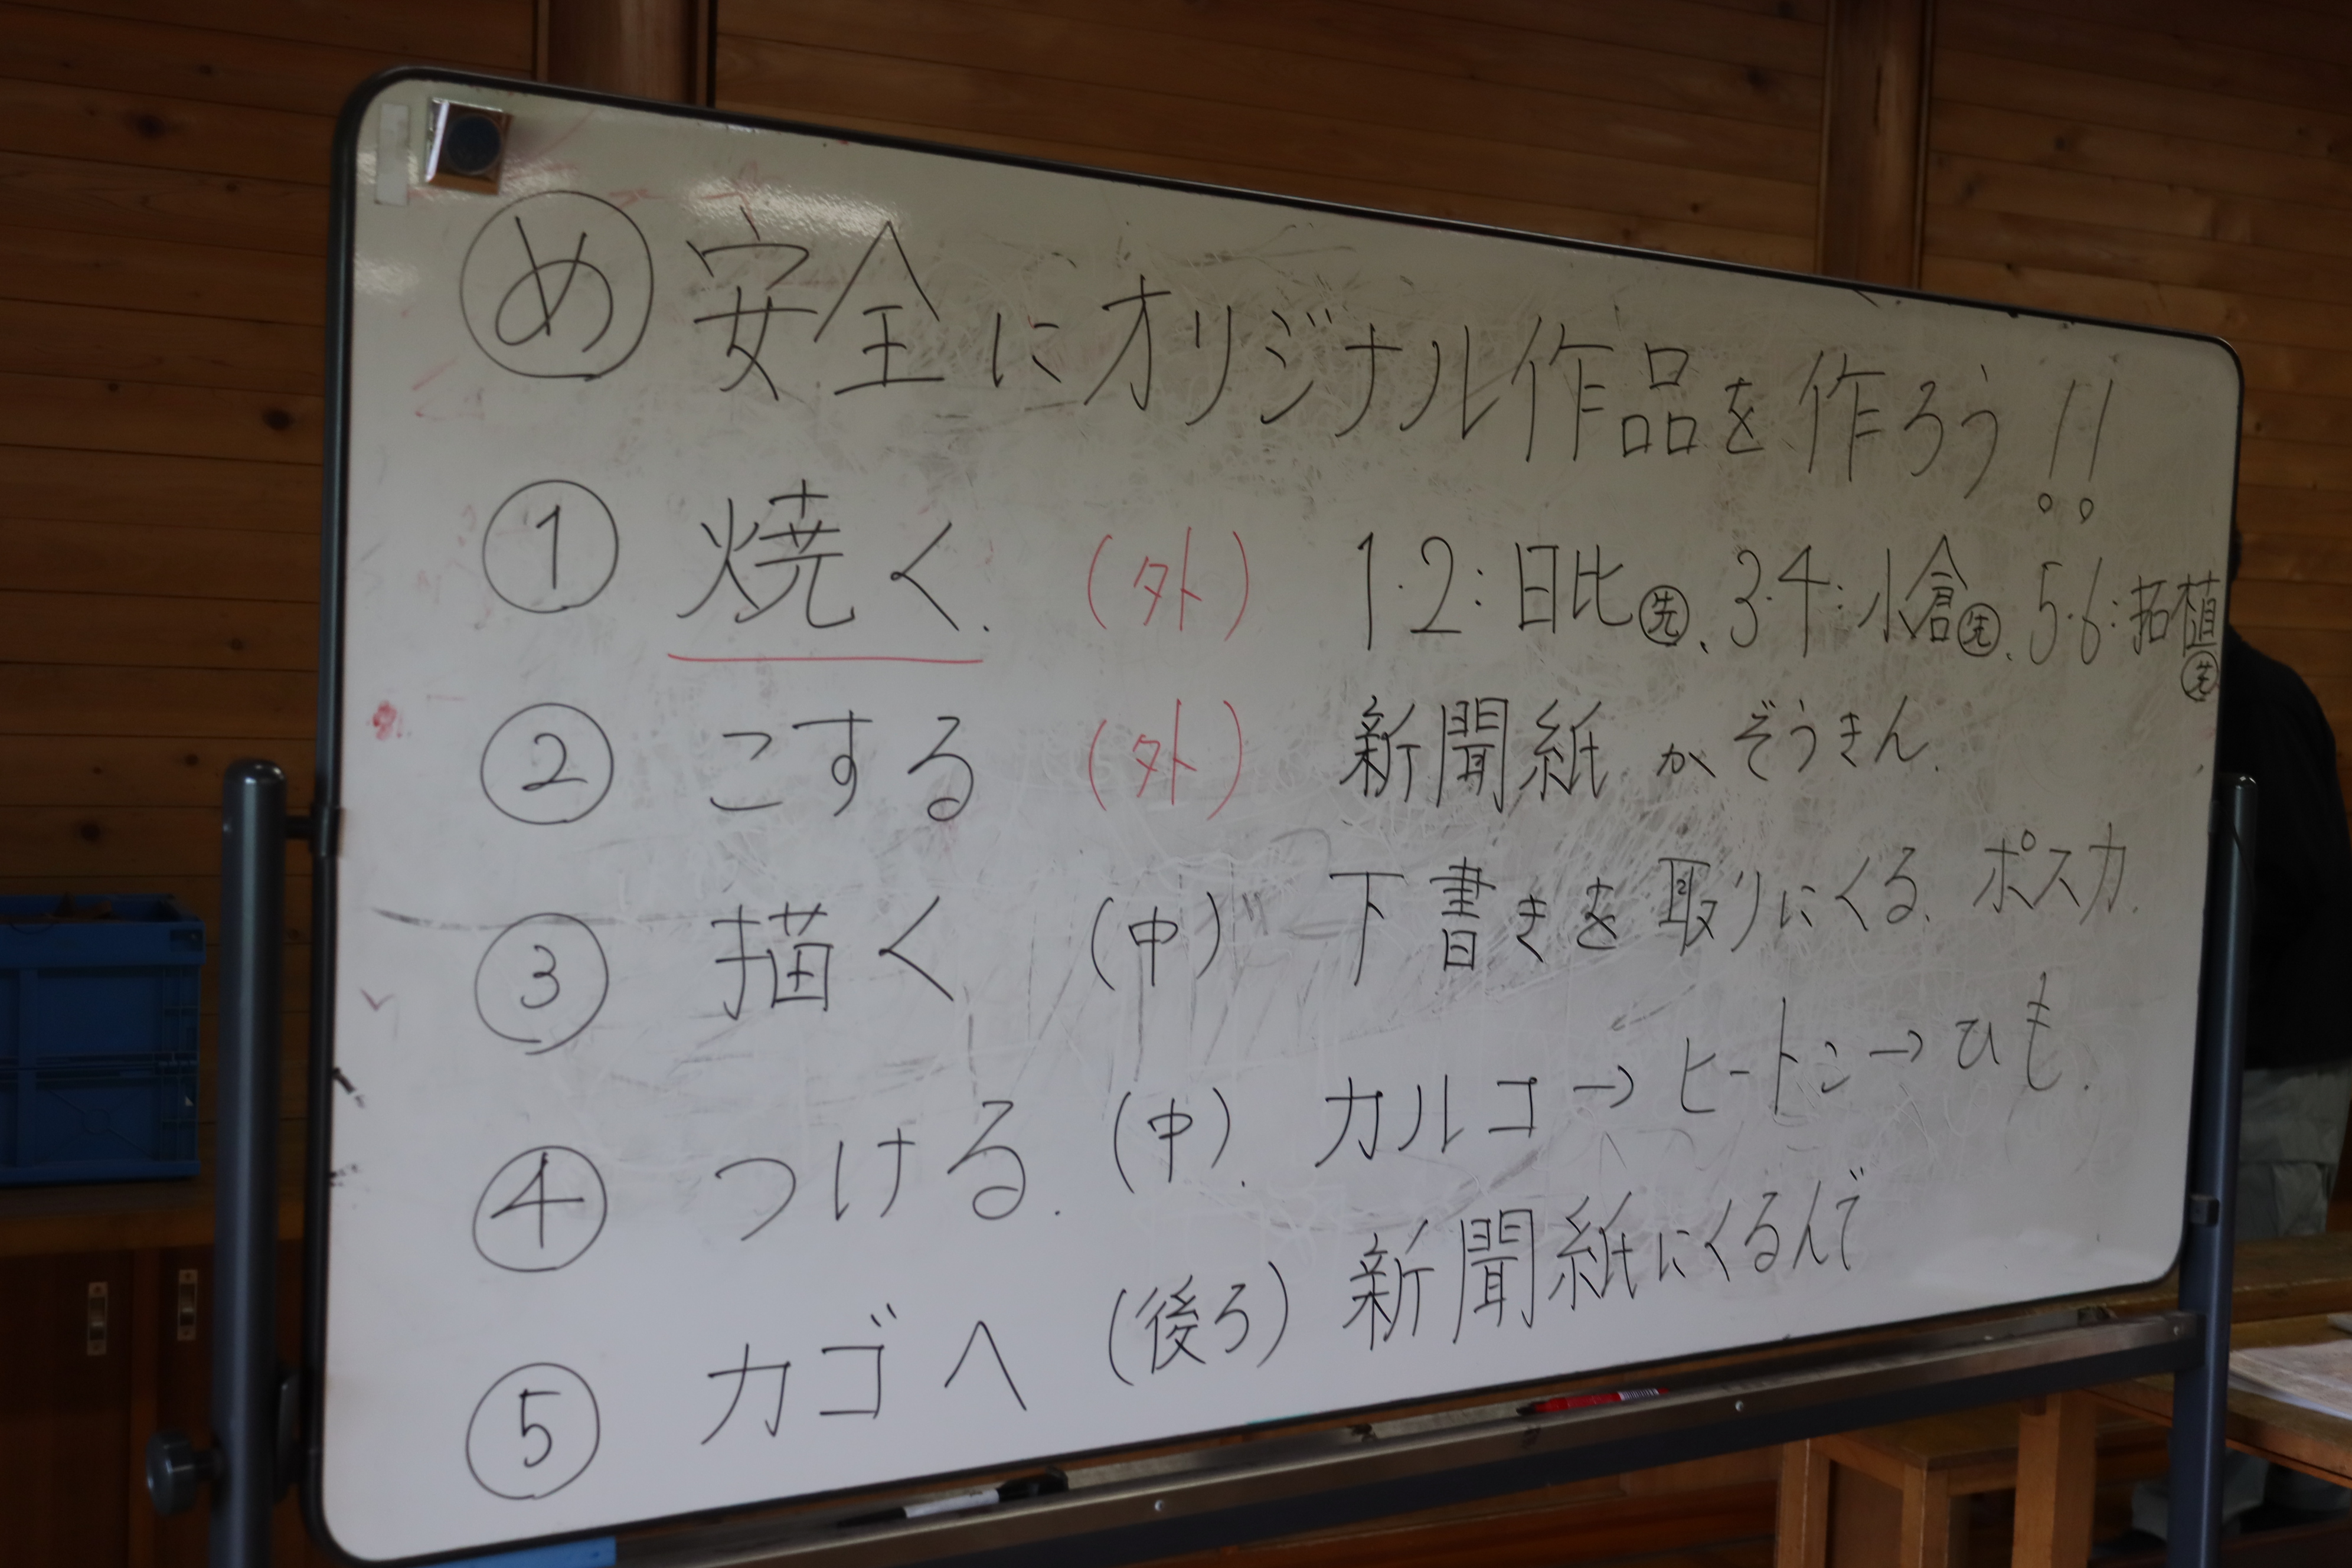 め 安全にオリジナル作品を作ろう!!
① 焼く. (外) 1・2:日比先、3・4:小倉先、5・6:拓植先
② こする (外) 新聞紙かぞうきん.
③ 描く (中) 下書きを取りにくる. ポスカ.
④ つける. (中). カルコ→ヒートン→ひも.
⑤ カゴへ (後ろ) 新聞紙にくるんで